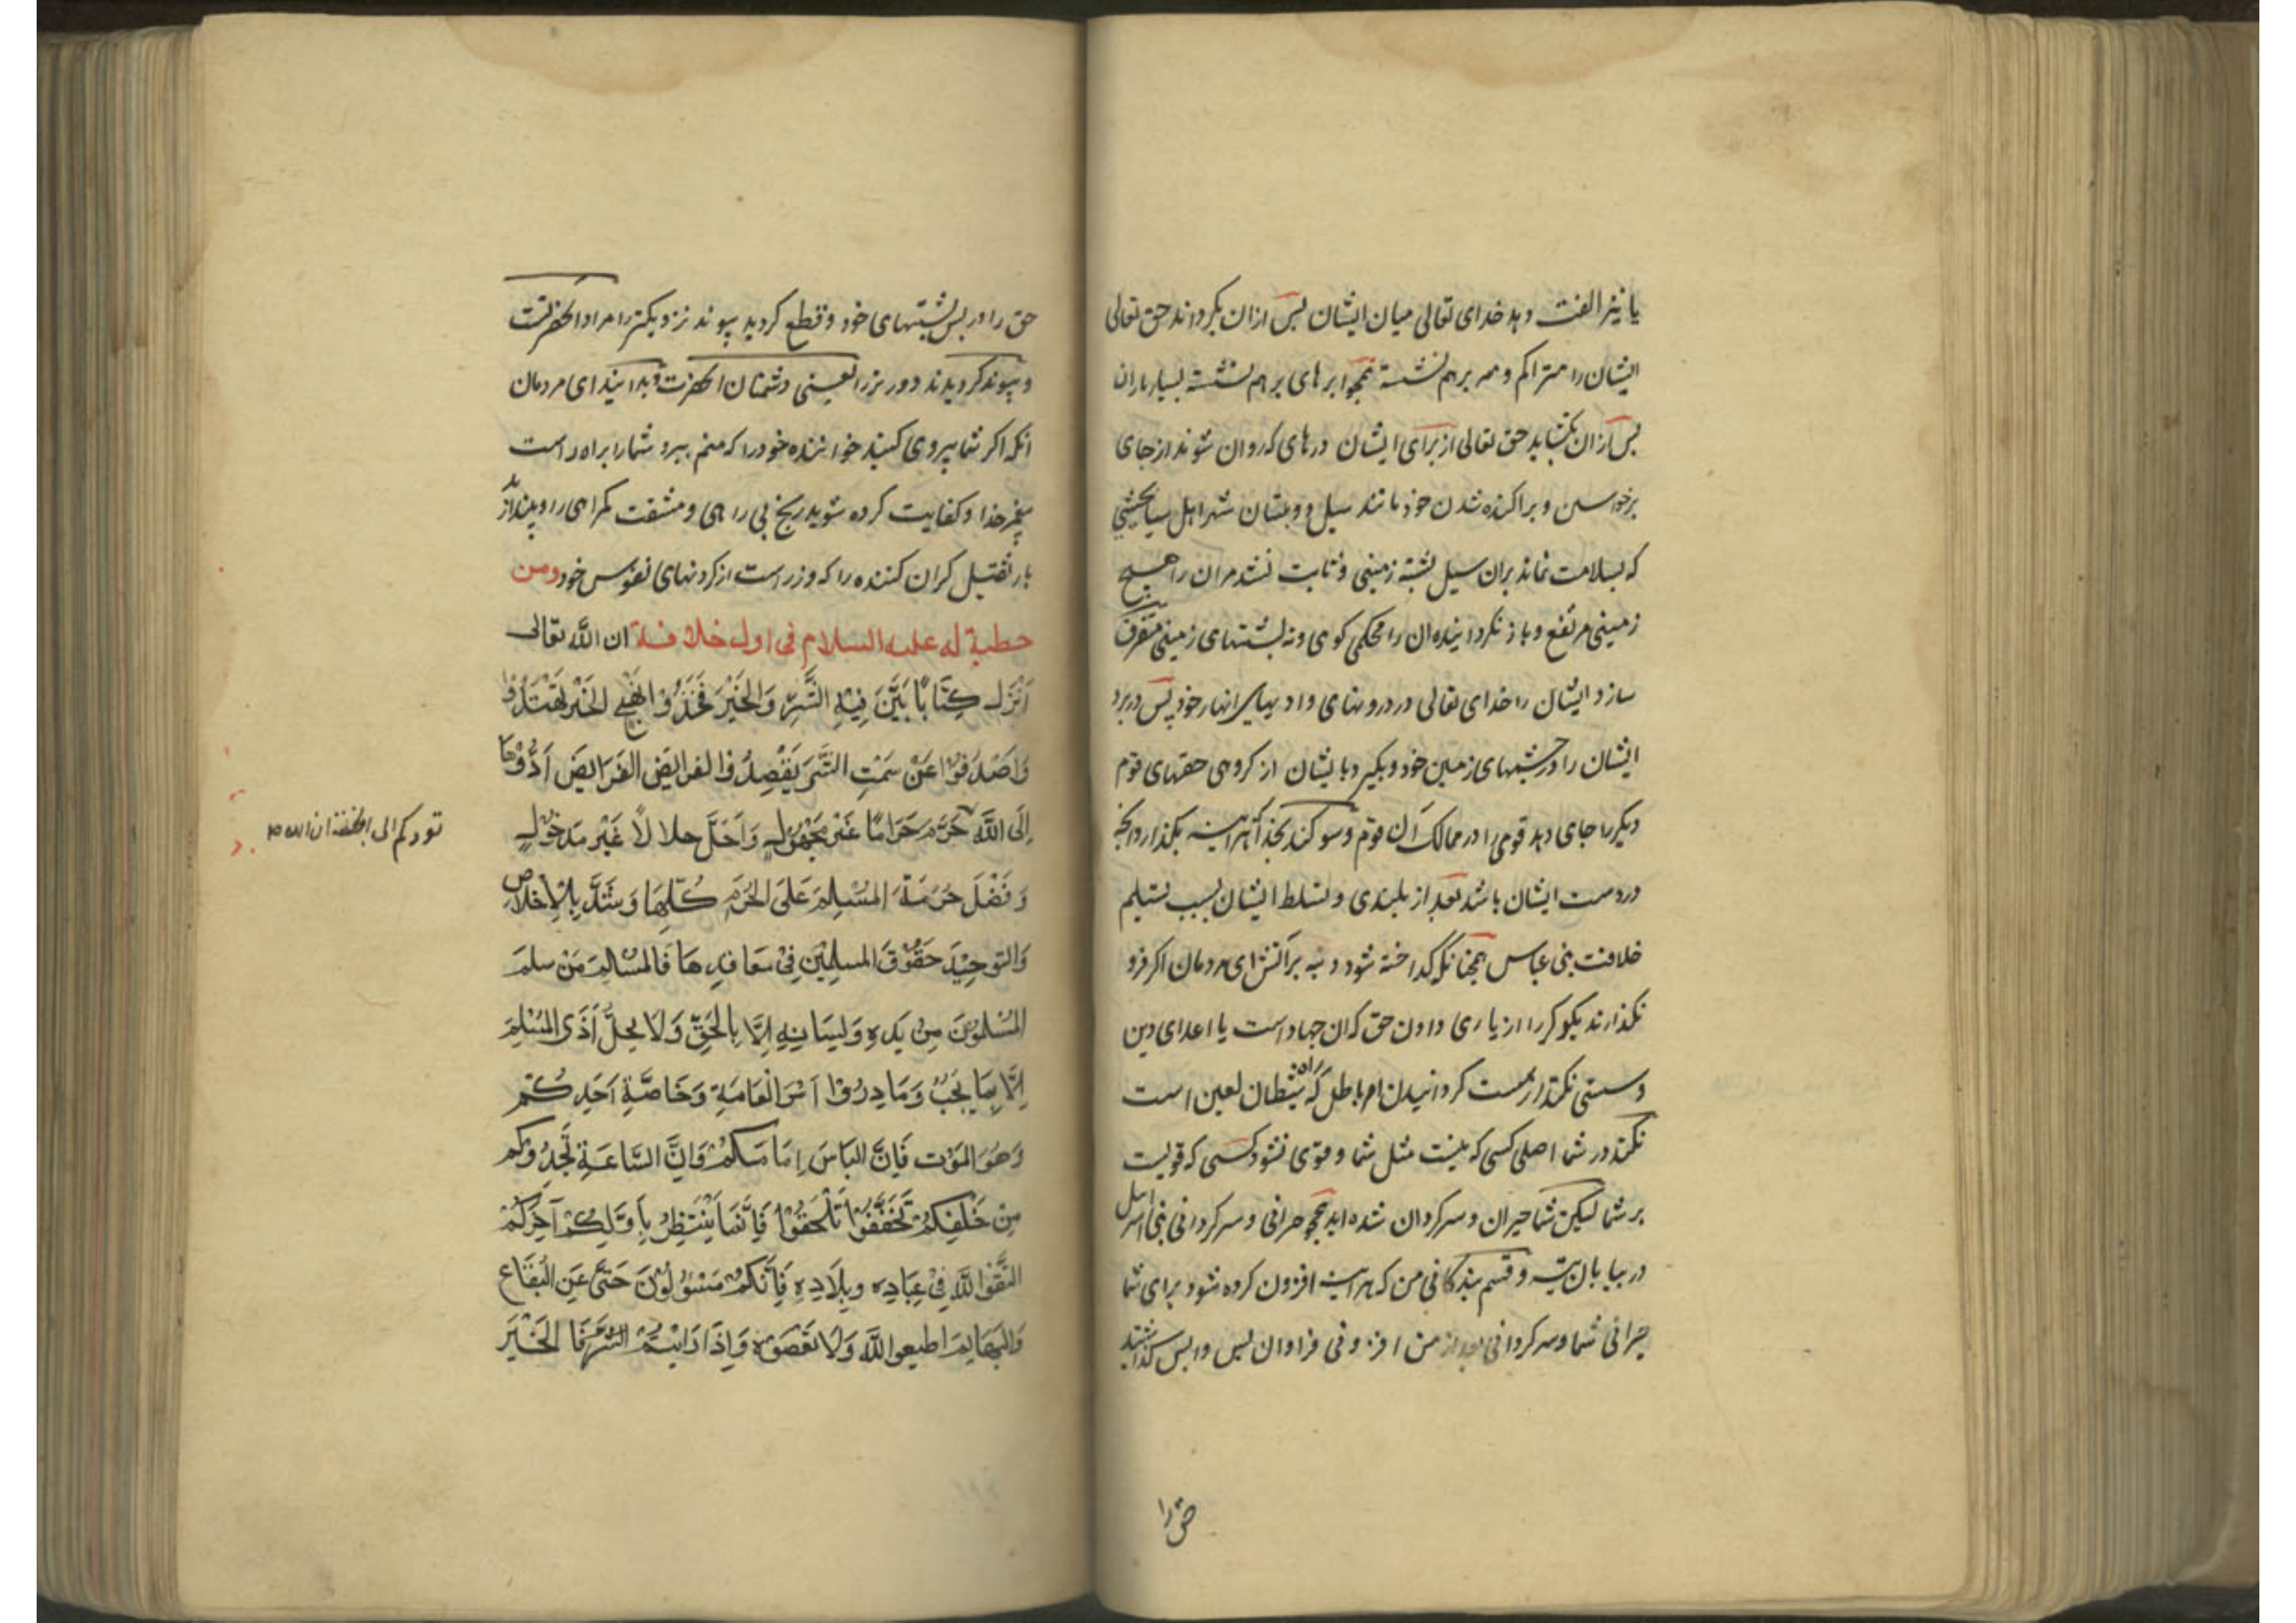 یا نیز الفت دهد خدای تعالی میان ایشان پس ازان بکرداند حق تعالی
ایشان را متراکم و همه بر هم نشسته همچو ابرهای بر هم نشسته بسیار باران
پس ازان بکشاید حق تعالی از برای ایشان درهای که روان شوند از جای
برخواستن و پراکنده شدن خود مانند سیل دو بستان شهر اهل سبا
که بسلامت نماند بران سیل پشته زمینی و ثابت نشد مر ان را هیچ
زمینی مرتفع و باز نکرداننده ان را محکمی کوهی و نه پشتهای زمینی متفرق
سازد ایشان را خدای تعالی در درونهای وادیهای انهار خود پس دربرد
ایشان را در چشمهای زمین خود و بکیرد بایشان از کروهی حقهای قوم
دیکر را جای دهد قومی را در ممالک آن قوم و سوکند بخدا که هر اینه بکذارد انچه
در دست ایشان باشد بعد از بلندی و تسلط ایشان بسبب تسلیم
خلافت بنی عباس همچنانکه کداخته شود دنبه بر آتش ای مردمان اکر فرو
نکذارند یکدیکر را از یاری دادن حق که ان جهاد است با اعدای دین
و سستی نکنند از سست کردانیدن امر باطل که راه شیطان لعین است
نکند در شما اصلی کسی که نیست مثل شما و قوی نشود کسی که قویست
بر شما لیکن شما حیران و سرکردان شده اید همچو حیرانی و سرکردانی بنی اسرایل
در بیابان تیه و قسم بزندکانی من که هر اینه افزون کرده شود برای شما
حیرانی شما و سرکردانی بعد از من افزونی فراوان پس واپس کذاشتید
حق را
حق را در پس پشتهای خود و قطع کردید پیوند نزدیکتر را مراد انحضرتست
و پیوند کردید دورتر را یعنی دشمنان انحضرت و بدانید ای مردمان
انکه اکر شما پیروی کنید خواننده خود را که منم ببرد شما را براه راست
پیغمبر خدا و کفایت کرده شوید رنج بی راهی و مشقت کمراهی را و بیندازید
بار ثقیل کران کننده را که وزر است از کردنهای نفوس خود ومن
خطبة له علیه السلام فی اول خلافة ان الله تعالی
اَنْزَلَ کِتَابًا بَیَّنَ فِیْهِ الشَّرَّ وَالخَیْرَ فَخُذُوْا نَهْجَ الخَیْرِ تَهْتَدُوْا
وَاصْدِفُوْا عَنْ سَمْتِ الشَّرِّ تَقْصِدُوْا الفرایض الفَرَایِضَ اَدُّوْهَا
اِلَی اللَّهِ حَرَّمَ حَرَامًا غَیْرَ مَجْهُوْلٍ وَاَحَلَّ حلالاً غَیْرَ مَدْخُوْلٍ
تودکم الی الجنة ان الله
وَفَضَّلَ حُرْمَةَ المُسْلِمِ عَلَی الحُرَمِ کُلِّهَا وَشَدَّ بِالْاِخْلَاصِ
وَالتَوحِیْدِ حَقُوْقَ المسلِمِیْنَ فِیْ مَعَاقِدِهَا فَالمُسْلِمُ مَنْ سلمَ
المُسْلِمُوْنَ مِنْ یَدِهِ وَلِسَانِهِ اِلَّا بِالحَقِّ وَلَا یحلُّ اَذَی المُسْلِمِ
اِلَّا بِمَا یَجِبُ وَبَادِرُوْا اَمْرَ الْعَامَةِ وَخَاصَّةَ اَحَدِکُمْ
وَهُوَ المَوْت فَاِنَّ النَاسَ اَمَامَکُمْ وَاِنَّ السَّاعَةَ تَحْدُوْکُم
مِنْ خَلْفِکُمْ تَخَفَّفُوْا تَلْحَقُوْا فَاِنَّمَا یُنْتَظَرُ بِاَوَّلِکُمْ آخِرُکُمْ
اتَّقُوْا اللَّهَ فِیْ عِبَادِهِ وبِلَادِهِ فَاِنَّکُمْ مَسْؤُلُوْنَ حَتَّی عَنِ البُقَاعِ
وَالبَهَایِم اطیعوا اللَّهَ وَلَا تَعْصَوْهُ وَاِذَا رَایْتُمْ الخَیْرَ